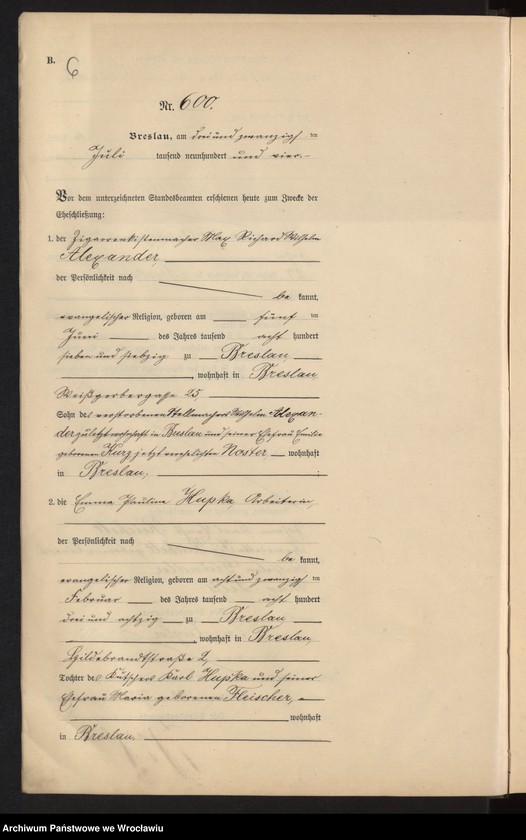 B.
6
Nr. 600.
Breslau, am drei und zwanzigsten
Juli tausend neunhundert und vier.
Vor dem unterzeichneten Standesbeamten erschienen heute zum Zwecke der
Eheschließung:
1. der Zigarrenkistenmacher Max Richard Wilhelm
Alexander,
der Persönlichkeit nach
be kannt,
evangelischer Religion, geboren am fünf ten
Juni des Jahres tausend acht hundert
sieben und siebzig zu Breslau
, wohnhaft in Breslau,
Weißgerbergasse 25,
Sohn des verstorbenen Stellmachers Wilhelm Alexan-
der zuletzt wohnhaft in Breslau und seiner Ehefrau Emilie
geborenen Kurz jetzt verehelichten Noster wohnhaft
in Breslau;
2. die Emma Pauline Hupka, Arbeiterin,
der Persönlichkeit nach
be kannt,
evangelischer Religion, geboren am acht und zwanzigsten
Februar des Jahres tausend acht hundert
drei und achtzig zu Breslau
, wohnhaft in Breslau
Hildebrandtstraße 2,
Tochter des Kutschers Karl Hupka und seiner
Ehefrau Maria geborenen Fleischer,
wohnhaft
in Breslau.
Archiwum Państwowe we Wrocławiu